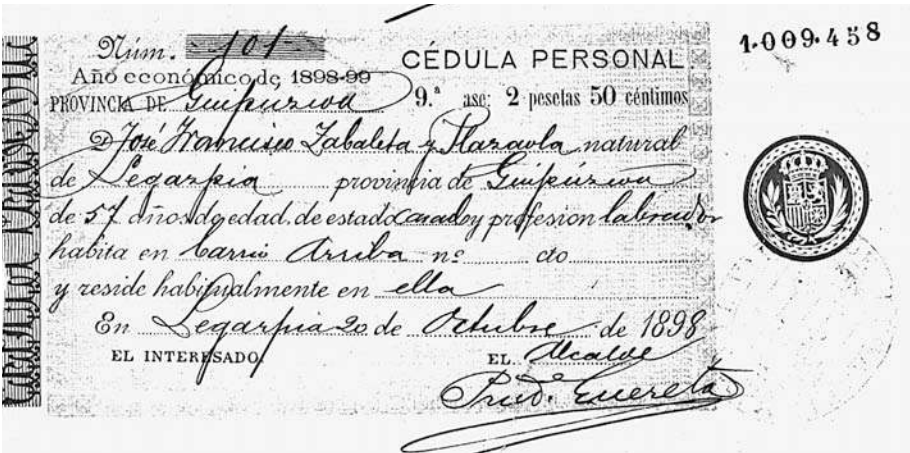 Núm. 101
Año económico de 1898-99
CÉDULA PERSONAL
1.009.458
PROVINCIA DE Guipúzcoa
9.ª ase: 2 pesetas 50 céntimos
D José Francisco Zabaleta y Plazaola natural
de Legazpia provincia de Guipúzcoa
de 57 años de edad, de estado casado y profesion labrador
habita en barrio Arriba nº cto
y reside habitualmente en ella
En Legazpia 20 de Octubre de 1898
EL INTERESADO,
EL Alcalde
Prud.º